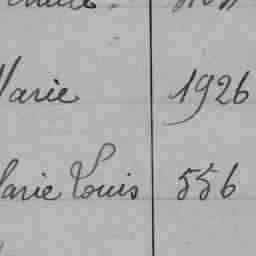 Marie 1926
Marie Louis 556